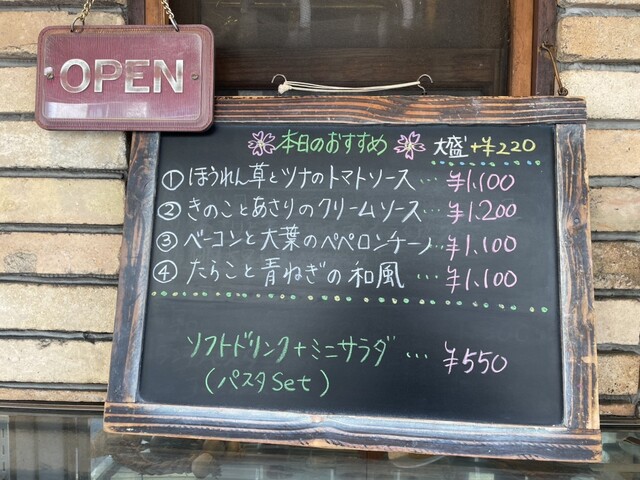 OPEN
本日のおすすめ 大盛+¥220
① ほうれん草とツナのトマトソース… ¥1,100
② きのことあさりのクリームソース… ¥1,200
③ ベーコンと大葉のペペロンチーノ… ¥1,100
④ たらこと青ねぎの和風 … ¥1,100
ソフトドリンク+ミニサラダ … ¥550
(パスタSet)